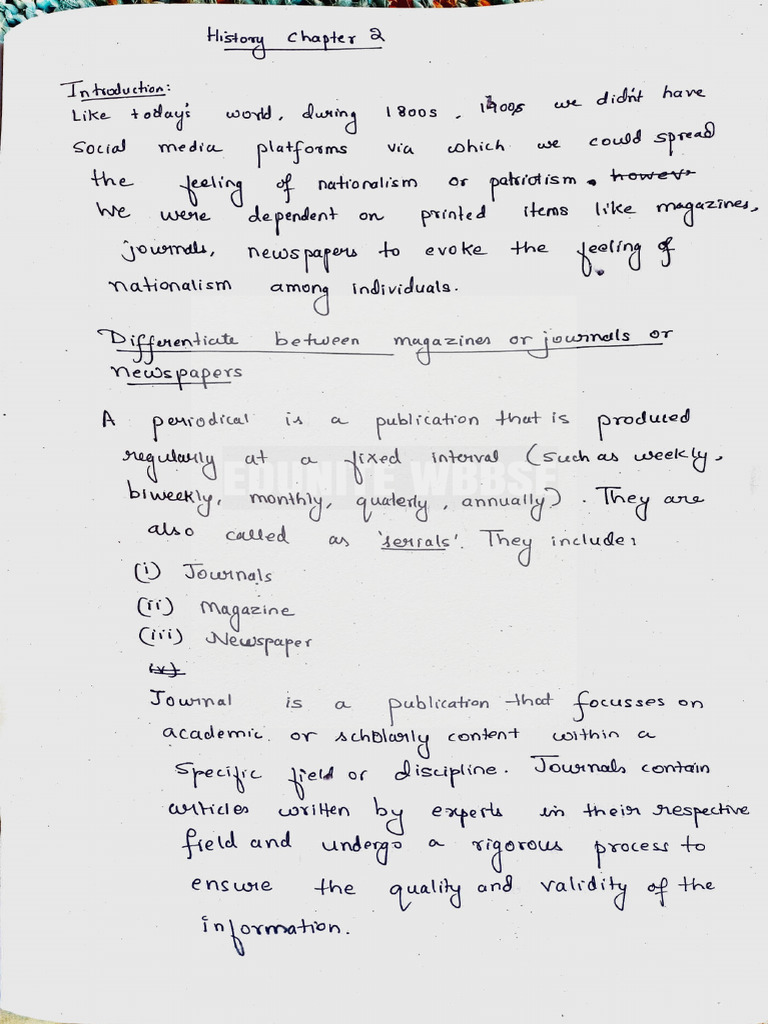 History Chapter 2
Introduction:
Like today's world, during 1800s, 1900s we didn't have
social media platforms via which we could spread
the feeling of nationalism or patriotism. howev
We were dependent on printed items like magazines,
journals, newspapers to evoke the feeling of
nationalism among individuals.
Differentiate between magazines or journals or
newspapers
A periodical is a publication that is produced
regularly at a fixed interval (such as weekly,
EDUNITE WBBSE
biweekly, monthly, quaterly, annually). They are
also called as 'serials'. They include:
(i) Journals
(ii) Magazine
(iii) Newspaper
(iv)
Journal is a publication that focusses on
academic or scholarly content within a
specific field or discipline. Journals contain
articles written by experts in their respective
field and undergo a rigorous process to
ensure the quality and validity of the
information.